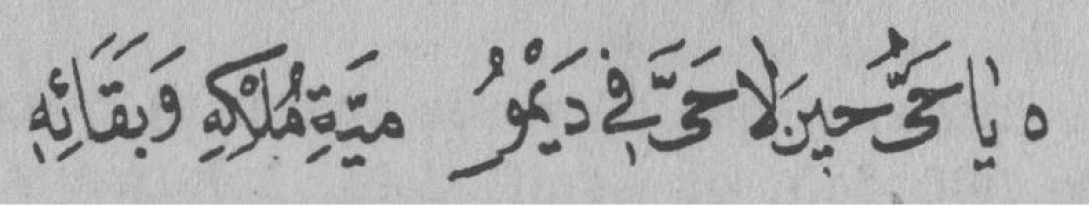 ه يَا حَىُّ حِينَ لَا حَىَّ فِي دَيْمُو مِيَّةِ مُلْكِهِ وَبَقَائِهِ